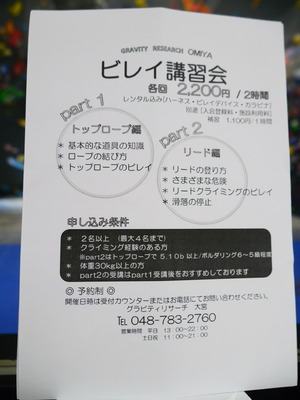 GRAVITY RESEARCH OMIYA
ビレイ講習会
各回 2,200円 / 2時間
レンタル込み(ハーネス・ビレイデバイス・カラビナ)
別途(入会登録料・施設利用料)
補習 1,100円/1時間
part 1
トップロープ編
* 基本的な道具の知識
* ロープの結び方
* トップロープのビレイ
part 2
リード編
* リードの登り方
* さまざまな危険
* リードクライミングのビレイ
* 滑落の停止
申し込み条件
* 2名以上 (最大4名まで)
* クライミング経験のある方
※part2はトップロープで 5.10b 以上/ボルダリング6~5級程度
* 体重30kg以上の方
* part2の受講はpart1受講後をおすすめしております
◎ 予約制 ◎
開催日時は受付カウンターまたはお電話にてお問い合わせください。
グラビティリサーチ 大宮
TEL 048-783-2760
営業時間 平日 13:00~22:00
土日祝 11:00~21:00